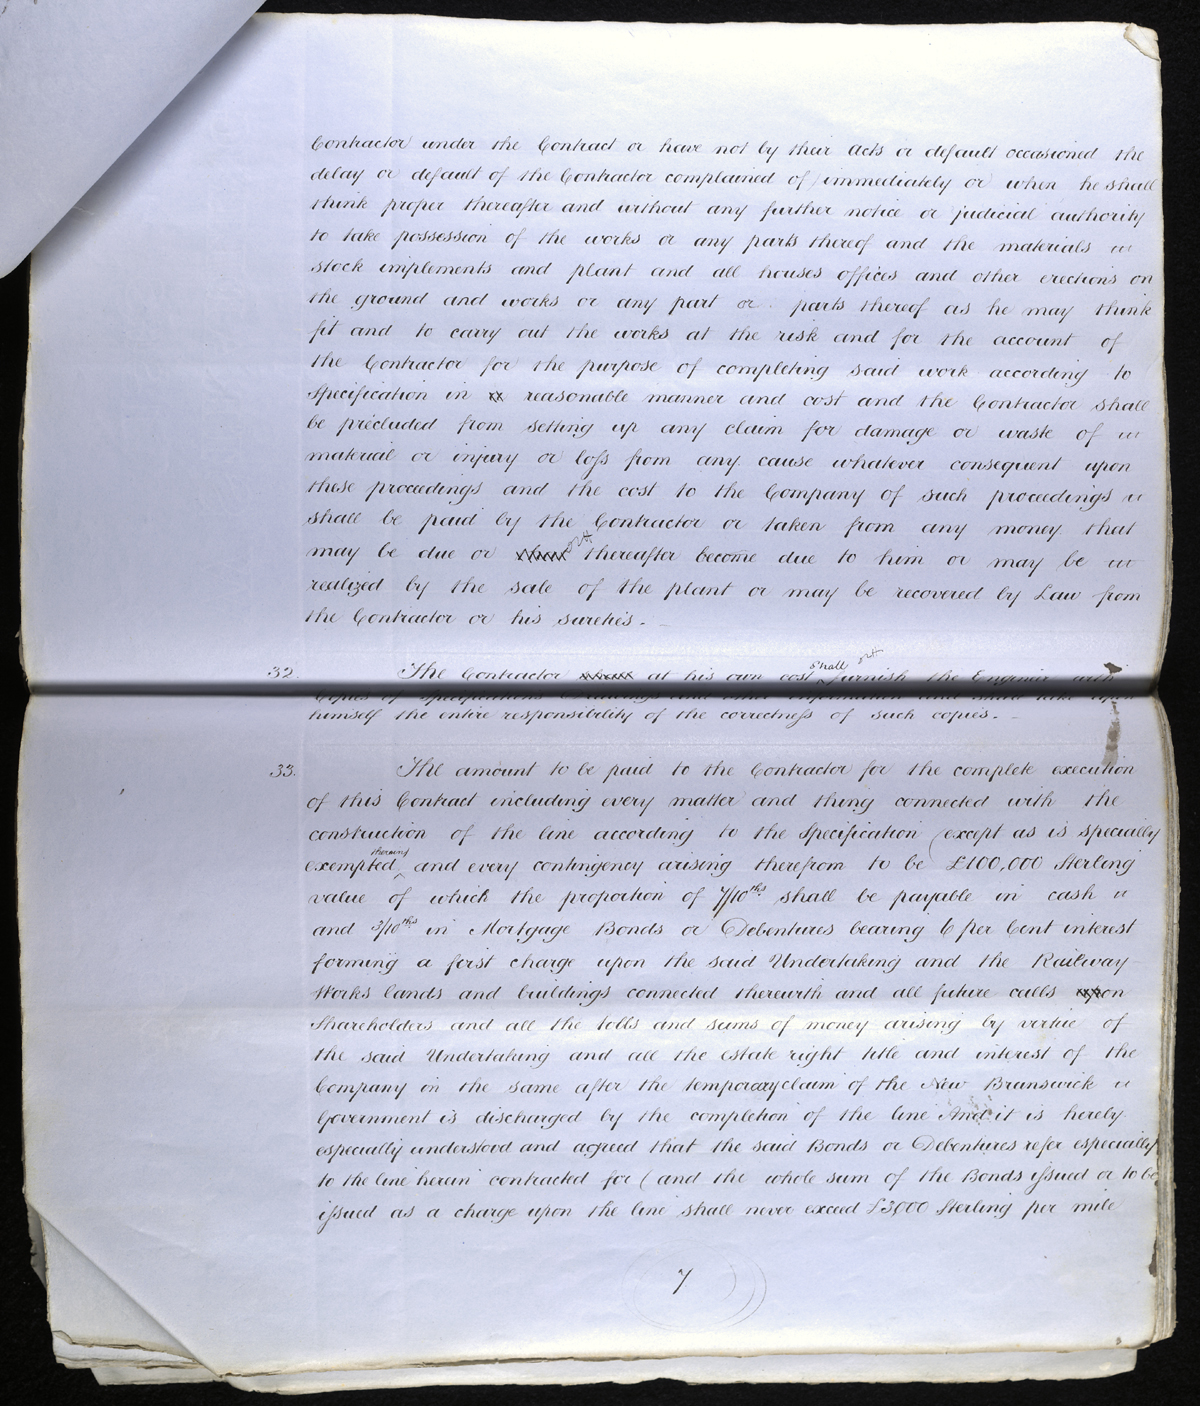 Contractor under the Contract or have not by their acts or default occasioned the
delay or default of the Contractor complained of) immediately or when he shall
think proper thereafter and without any further notice or judicial authority
to take possession of the works or any parts thereof and the materials
stock implements and plant and all houses offices and other erections on
the ground and works or any part or parts thereof as he may think
fit and to carry out the works at the risk and for the account of
the Contractor for the purpose of completing said work according to
Specification in reasonable manner and cost and the Contractor shall
be precluded from setting up any claim for damage or waste of
material or injury or loss from any cause whatever consequent upon
these proceedings and the cost to the Company of such proceedings
shall be paid by the Contractor or taken from any money that
may be due or thereafter become due to him or may be
realized by the sale of the plant or may be recovered by Law from
the Contractor or his sureties.
32. The Contractor at his own cost shall furnish the Engineer with
Copies of Specifications Drawings and other
himself the entire responsibility of the correctness of such copies.
33. The amount to be paid to the Contractor for the complete execution
of this Contract including every matter and thing connected with the
construction of the line according to the Specification (except as is specially
exempted therein) and every contingency arising therefrom to be £100,000 Sterling
value of which the proportion of 7/10ths shall be payable in cash
and 3/10ths in Mortgage Bonds or Debentures bearing 6 per Cent interest
forming a first charge upon the said Undertaking and the Railway
Works lands and buildings connected therewith and all future calls on
Shareholders and all the tolls and sums of money arising by virtue of
the said Undertaking and all the estate right title and interest of the
Company in the same after the temporary claim of the New Brunswick
Government is discharged by the completion of the line And it is hereby
especially understood and agreed that the said Bonds or Debentures refer especially
to the line herein contracted for (and the whole sum of the Bonds issued or to be
issued as a charge upon the line shall never exceed £3,000 Sterling per mile
7